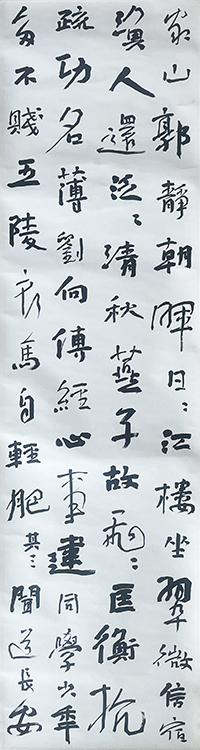 家山郭靜朝暉日〻江樓坐翠微信宿
漁人還泛〻清秋燕子故飛〻匡衡抗
疏功名薄劉向傳經心事違同學少年
多不賤五陵衣馬自輕肥其三聞道長安